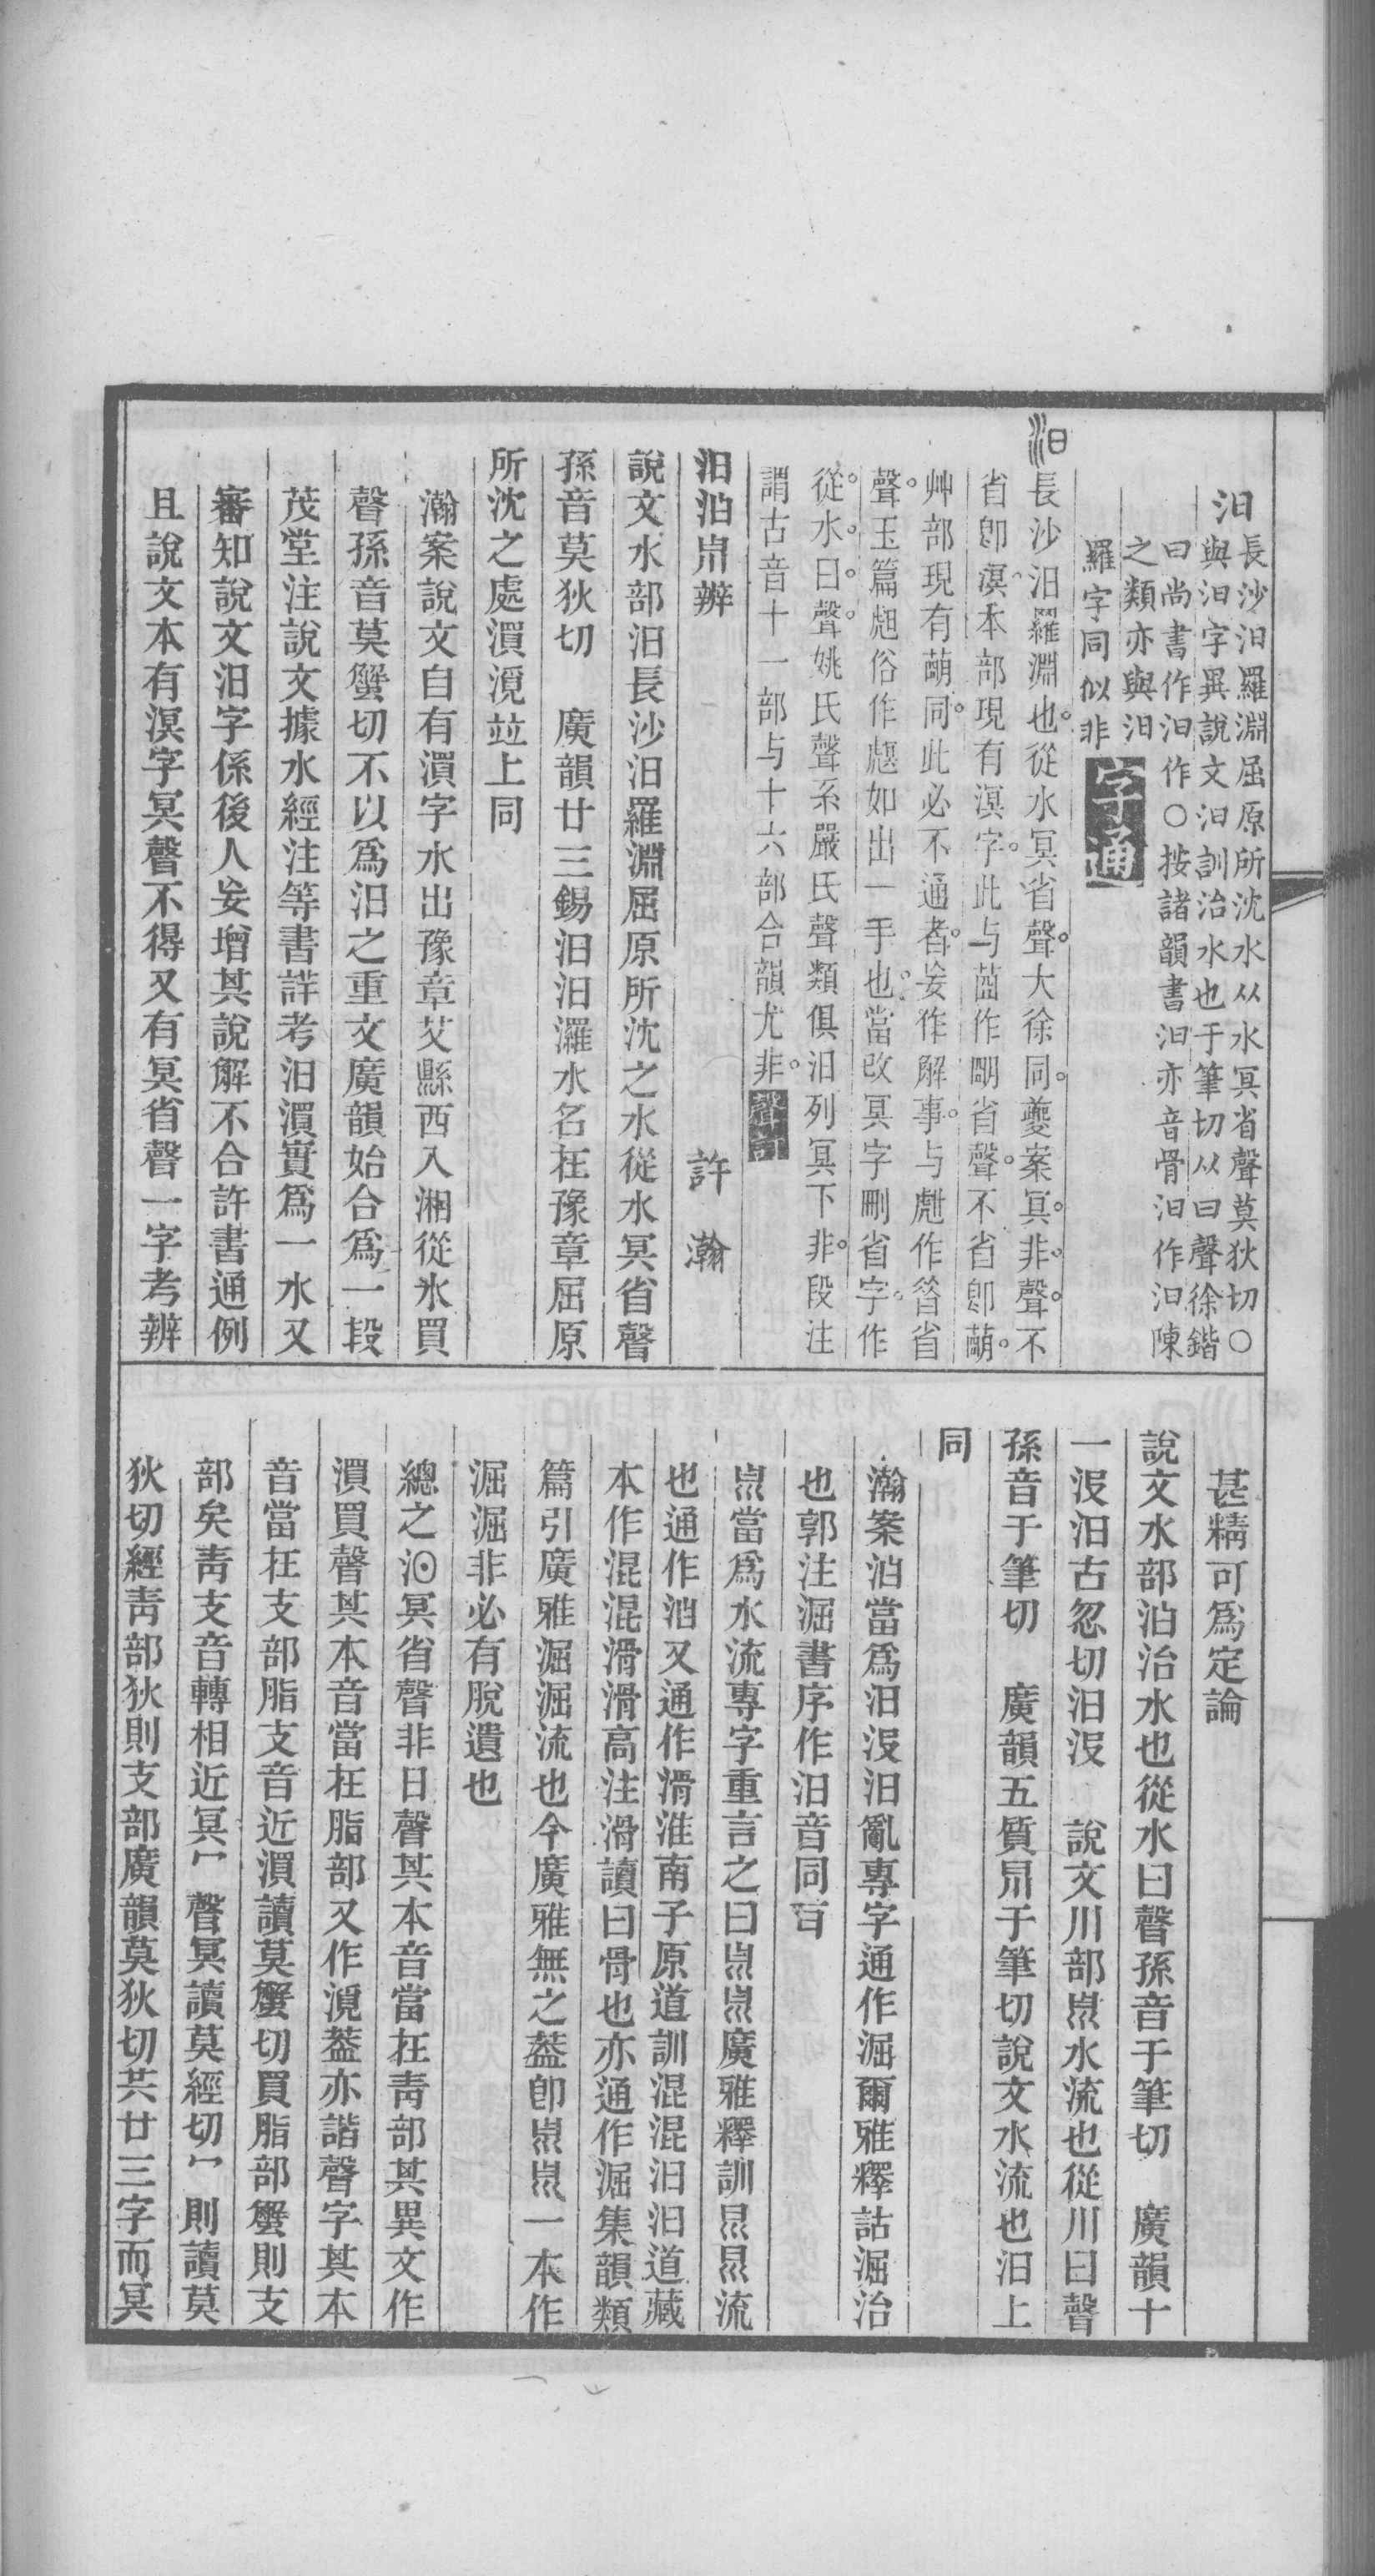 汨
長沙汨羅淵屈原所沈水从水冥省聲莫狄切〇
與汩字異說文汩訓治水也于筆切从曰聲徐鍇
曰尚書作汩作〇按諸韻書汩亦音骨汩作汩陳
之類亦與汨
羅字同似非
字通
汨長沙汨羅淵也從水冥省聲大徐同夔案冥非聲不
省卽溟本部現有溟字此与莔作朙省聲不省卽萌
艸部現有萌同此必不通者妄作解事与虣作省
聲玉篇俗作如出一手也當改冥字刪省字作
從水曰聲姚氏聲系嚴氏聲類俱汨列冥下非段注
謂古音十一部与十六部合韻尤非
聲訂
汨汩𡿯辨
許瀚
說文水部汨長沙汨羅淵屈原所沈之水從水冥省聲
孫音莫狄切　廣韻廿三錫汨汨羅水名在豫章屈原
所沈之處濵並上同
瀚案說文自有字水出豫章艾縣西入湘從水買
聲孫音莫蟹切不以爲汨之重文廣韻始合爲一段
茂堂注說文據水經注等書詳考汨實爲一水又
審知說文汨字係後人妄增其說解不合許書通例
且說文本有溟字冥聲不得又有冥省聲一字考辨
甚精可爲定論
說文水部汩治水也從水曰聲孫音于筆切　廣韻十
一沒汩古忽切汩沒　說文川部𡿯水流也從川曰聲
孫音于筆切　廣韻五質𡿯于筆切說文水流也汩上
同
瀚案汩當爲汩沒汩亂專字通作淈爾雅釋詁淈治
也郭注淈書序作汩音同耳
𡿯當爲水流專字重言之曰𡿯𡿯廣雅釋訓𡿯𡿯流
也通作汩又通作滑淮南子原道訓混混汩汩道藏
本作混混滑滑高注滑讀曰骨也亦通作淈集韻類
篇引廣雅淈淈流也今廣雅無之葢卽𡿯𡿯一本作
淈淈非必有脫遺也
總之冥省聲非日聲其本音當在靑部其異文作
買聲其本音當在脂部又作葢亦諧聲字其本
音當在支部脂支音近讀莫蟹切買脂部蟹則支
部矣靑支音轉相近冥冖聲冥讀莫經切冖則讀莫
狄切經靑部狄則支部廣韻莫狄切共廿三字而冥